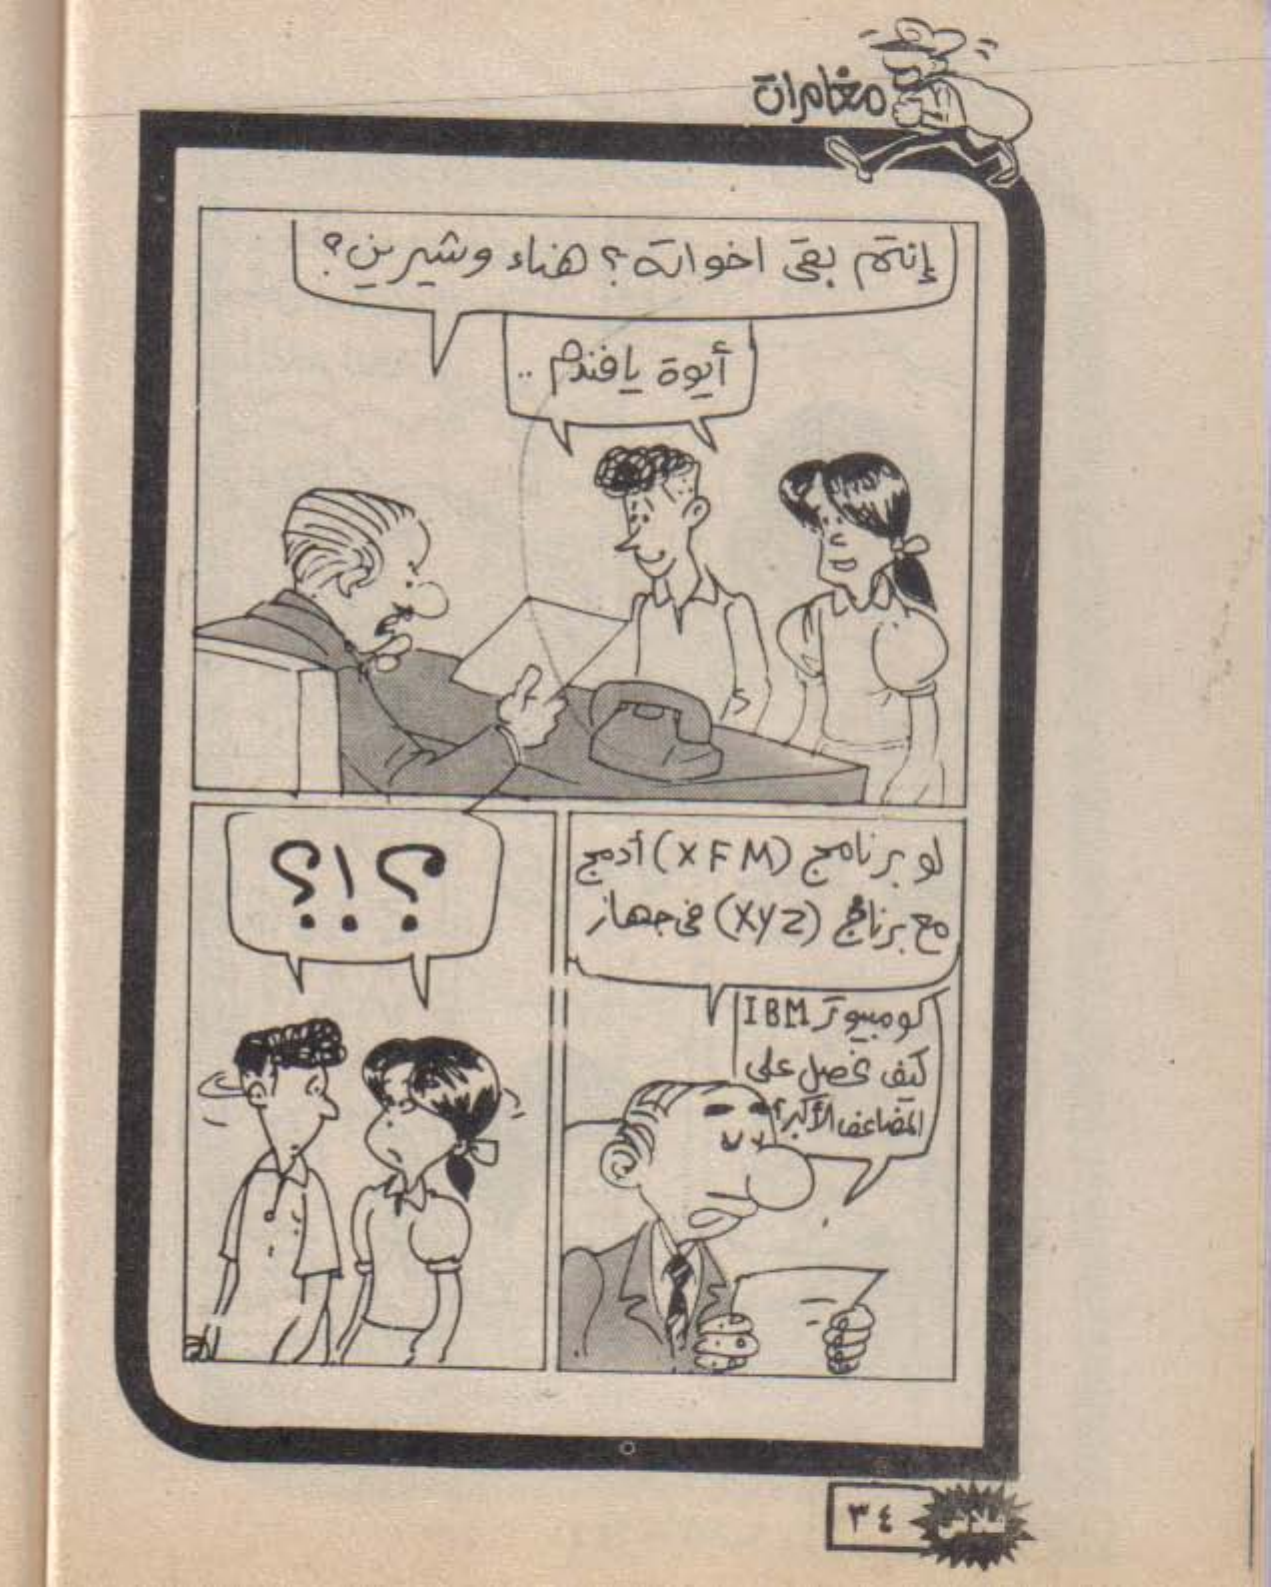 مغامرات
إنتم بقى اخوات؟ هناء وشيرين؟
أيوة يا فندم ..
لو برنامج (X F M) أدمج
مع برنامج (XYZ) فى جهاز
كومبيوتر IBM
كيف نحصل على
المضاعف الأكبر؟
؟!؟
٣٤
فلاش